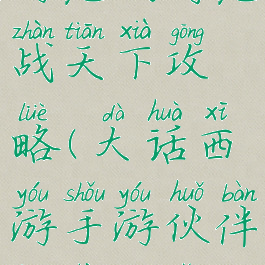 zhàn tiān xià gōng
战天下攻
lüè dà huà xī
略(大话西
yóu shǒu yóu huǒ bàn
游手游伙伴